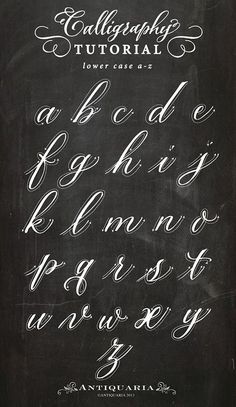 Calligraphy
TUTORIAL
lower case a-z
a b c d e
f g h i j
k l m n o
p q r s t
u v w x y
z
ANTIQUARIA
©ANTIQUARIA 2012